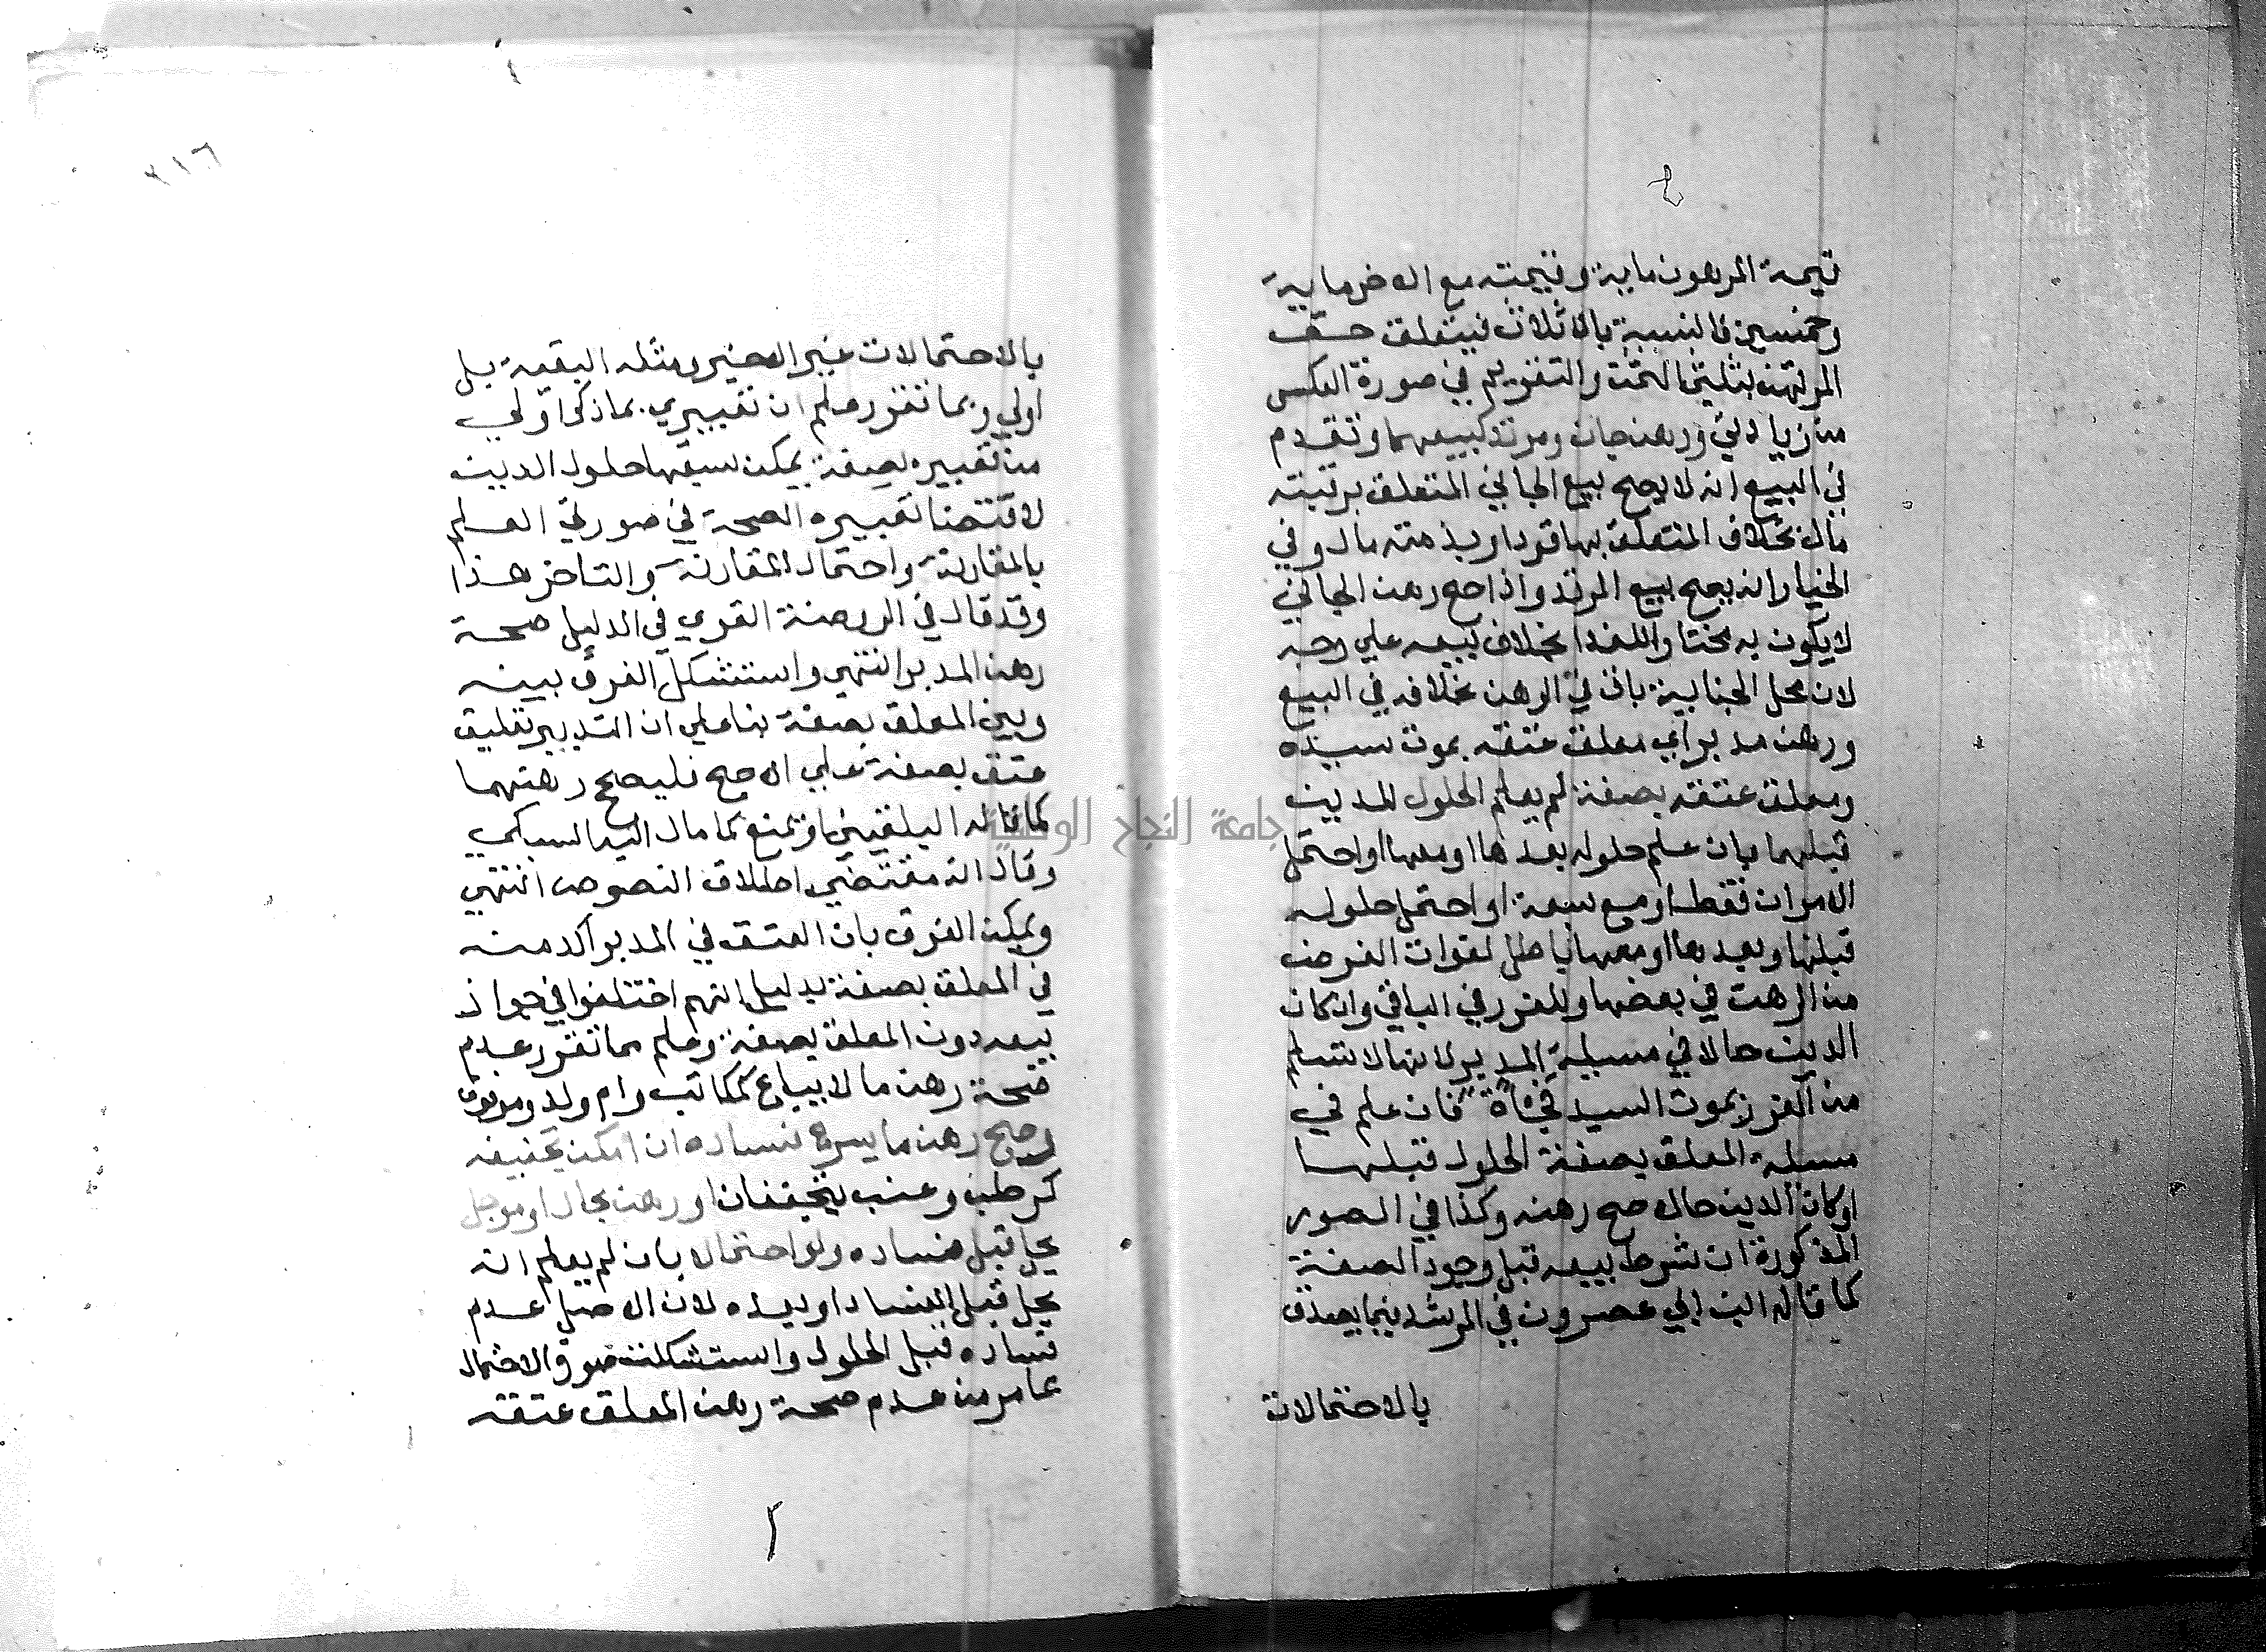 قيمة المرهون ماية وقيمته مع الاخر ماية
وخمسين فالنسبة بالاثلاث فيتعلق حق
المرتهن بثلثي الثمن والتقويم في صورة العكس
من زيادتي ورهن جان ومرتد كبيعهما وتقدم
في البيع انه لا يصح بيع الجاني المتعلق برقبته
مال بخلاف المتعلق بها قود او بذمته مال وفي
الخيار انه يصح بيع المرتد واذا صح رهن الجاني
لا يكون به مختارا للفدا بخلاف بيعه علي وجه
لان محل الجناية باق في الرهن بخلافه في البيع
ورهن مدبر اي معلق عتقه بموت سيده
ومعلق عتقه بصفة لم يعلم الحلول للدين
قبلهما بان علم حلوله بعدها او معها او احتمل
الامران فقط او مع سبقه او احتمل حلوله
قبلها وبعدها او معها باطل لفوات الغرض
من الرهن في بعضها وللغرر في الباقي وان كان
الدين حالا في مسيلة المدبر لانها لا تسلم
من الغرر بموت السيد فجاة فان علم في
مسيلة المعلق بصفة الحلول قبلها
او كان الدين حالا صح رهنه وكذا في الصور
المذكورة ان شرط بيعه قبل وجود الصفة
كما قاله ابن ابي عصرون في المرشد فيما يصدق
بالاحتمالات
٢١٦
بالاحتمالات غير الاخير ومثله البقية بل
اولي وبما تقرر علم ان تعبيري بما ذكر اولي
من تعبيره بصفة يمكن سبقها حلول الدين
لاقتضا تعبيره الصحة في صورتي العلم
بالمقارنة واحتمال المقارنة والتاخر هذا
وقد قال في الروضة القوي في الدليل صحة
رهن المدبر انتهي واستشكل الفرق بينه
وبين المعلق بصفة بنا علي ان التدبير تعليق
عتق بصفة علي الاصح فليصح رهنهما
كما قاله البلقيني او يمنع كما مال اليه السبكي
وقال انه مقتضي اطلاق النصوص انتهي
ويمكن الفرق بان العتق في المدبر آكد منه
في المعلق بصفة بدليل انهم اختلفوا في جواز
بيعه دون المعلق بصفة وعلم مما تقرر عدم
صحة رهن ما لا يباع كمكاتب وام ولد وموقوف
وصح رهن ما يسرع فساده ان امكن تجفيفه
كرطب وعنب يتجففان او رهن بحال او موجل
يحل قبل فساده ولو احتمالا بان لم يعلم انه
يحل قبل الفساد او بعده لان الاصل عدم
فساده قبل الحلول واستشكلت صورة الاحتمال
بما مر من عدم صحة رهن المعلق عتقه
جامعة النجاح الوطنية